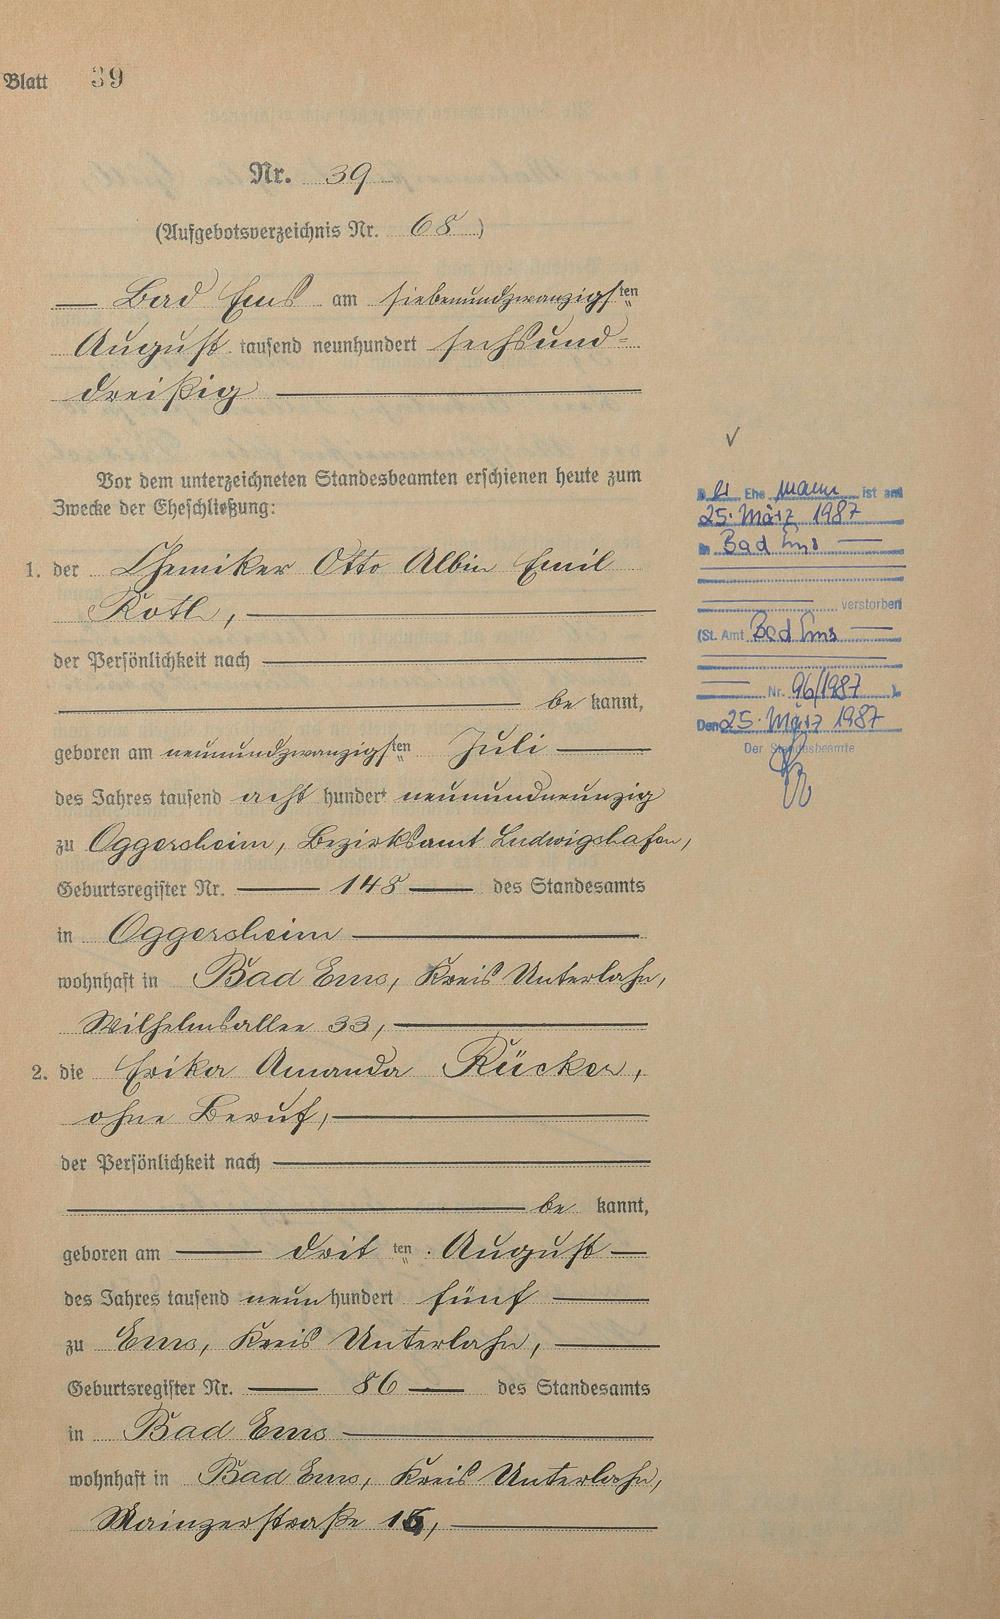 Blatt 39
Nr. 39
(Aufgebotsverzeichnis Nr. 68)
Bad Ems am siebenundzwanzigsten
August tausend neunhundert sechsund=
dreißig
Vor dem unterzeichneten Standesbeamten erschienen heute zum
Zwecke der Eheschließung:
1. der Chemiker Otto Albin Emil
Roth,
der Persönlichkeit nach
be kannt,
geboren am neunundzwanzigsten Juli
des Jahres tausend acht hundert neunundneunzig
zu Oggersheim, Bezirksamt Ludwigshafen,
Geburtsregister Nr. 148 des Standesamts
in Oggersheim
wohnhaft in Bad Ems, Kreis Unterlahn,
Wilhelmsallee 33,
2. die Erika Amanda Rücker,
ohne Beruf,
der Persönlichkeit nach
be kannt,
geboren am dritten August
des Jahres tausend neun hundert fünf
zu Ems, Kreis Unterlahn,
Geburtsregister Nr. 86 des Standesamts
in Bad Ems
wohnhaft in Bad Ems, Kreis Unterlahn,
Mainzerstraße
Der Ehe mann ist am
25. März 1987
in Bad Ems
verstorben
(St. Amt Bad Ems
Nr. 96/1987 ).
Den 25. März 1987
Der Standesbeamte